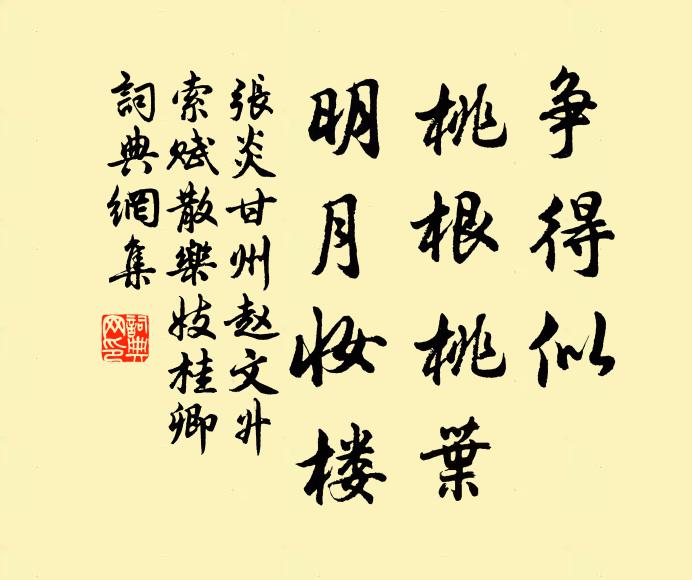 争得似
桃根桃葉
明月妆楼
張炎甘州赵文升
索赋散樂妓桂卿
詞典網集
詞典
网印